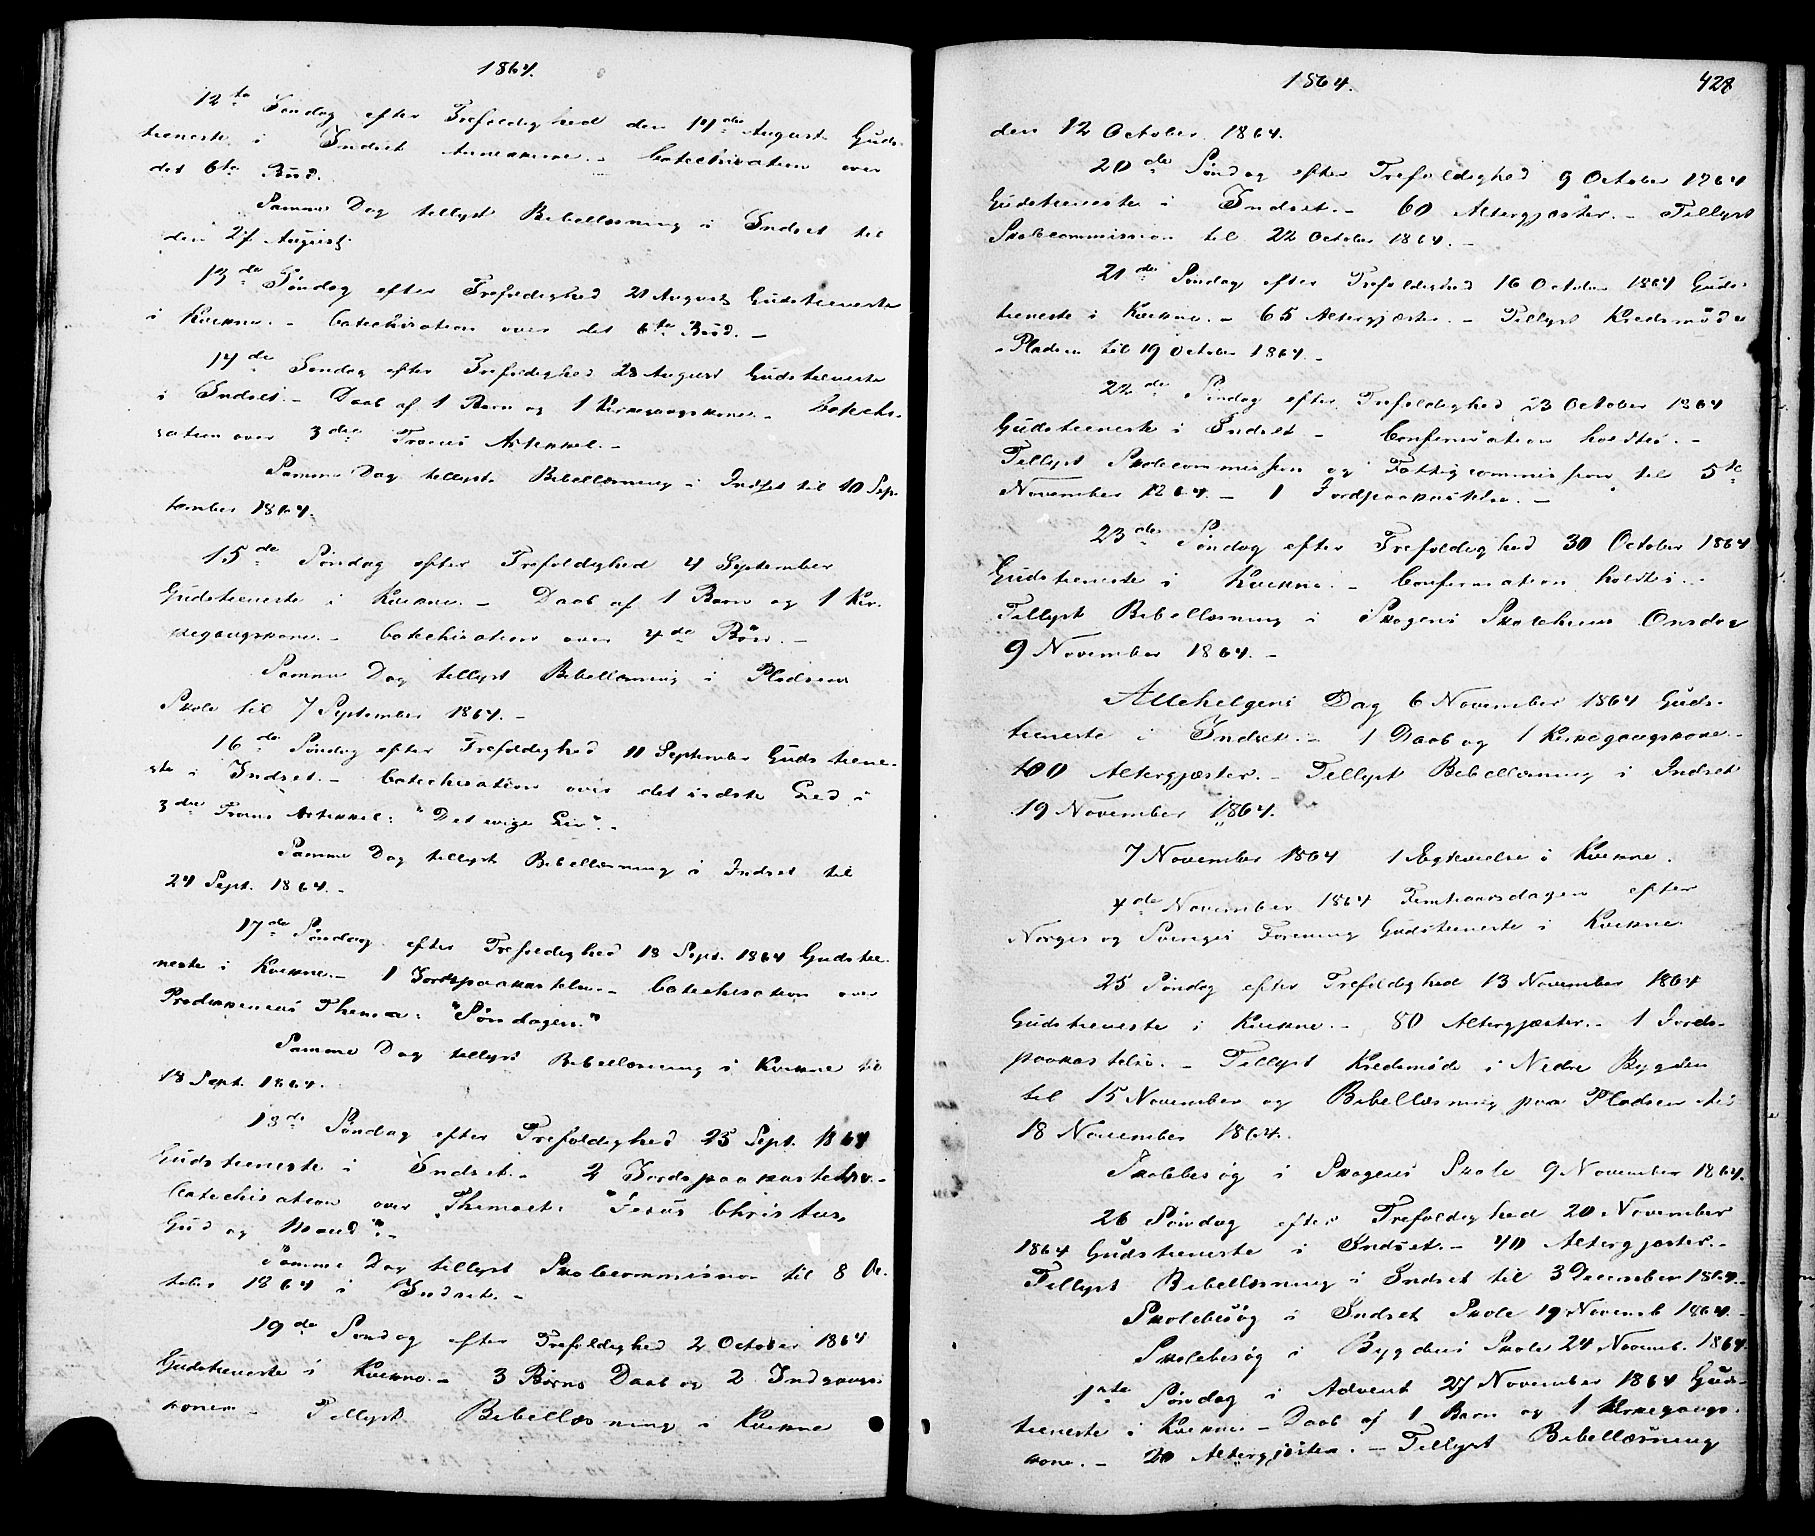 1864.
12te Søndag efter Trefoldighed den 14de August Guds-
tieneste i Indset Annexkirke. - Catechisation over
det 6te Bud.
Samme Dag tillyst Bibellæsning i Indset til
den 27 August.
13de Søndag efter Trefoldighed 21 August Gudstieneste
i Kvikne. - Catechisation over det 6te Bud. -
14de Søndag efter Trefoldighed 28 August Gudstieneste
i Indset. - Daab af 1 Barn og 1 Kirkegangskone. - Catechi-
sation over 3die Troens Artikkel. -
Samme Dag tillyst Bibellæsning i Indset til 10 Sep-
tember 1864.
15de Søndag efter Trefoldighed 4 September
Gudstieneste i Kvikne. - Daab af 1 Barn og 1 Kir-
kegangskone. - Catechisation over 4de Bøn. -
Samme Dag tillyst Bibellæsning i Pladsens
Skole til 7 September 1864. -
16de Søndag efter Trefoldighed 11 September Guds tiene-
ste i Indset. - Catechisation over det sidste Led i
3die Troens Artikkel: "Det evige Liv". -
Samme Dag tillyst Bibellæsning i Indset til
24 Sept. 1864. -
17de Søndag efter Trefoldighed 18 Sept. 1864 Gudstie-
neste i Kvikne. - 1 Jordspaakastelse. - Catechisation over
Prædikenens Thema: "Søndagen."
Samme Dag tillyst Bibellæsning i Kvikne til
18 Sept. 1864.
18de Søndag efter Trefoldighed 25 Sept. 1864
Gudstieneste i Indset. - 2 Jordspaakastelser. -
Catechisation over Themaet: "Jesus Christus,
Gud og Mand". -
Samme Dag tillyst Skolecommission til 8 Oc-
tober 1864 i Indset. -
19de Søndag efter Trefoldighed 2 October 1864
Gudstieneste i Kvikne. - 3 Børns Daab og 2 Indgangs-
koner. - Tillyst Bibellæsning i Kvikne
1864.
428
den 12 October 1864.
20de Søndag efter Trefoldighed 9 October 1864
Gudstieneste i Indset. - 60 Altergjæster. - Tillyst
Skolecommission til 22 October 1864. -
21de Søndag efter Trefoldighed 16 October 1864 Guds-
tieneste i Kvikne. - 65 Altergjæster. - Tillyst Kredsmøde
i Pladsen til 19 October 1864. -
22de Søndag efter Trefoldighed 23 October 1864
Gudstieneste i Indset. - Confirmation holdtes. -
Tillyst Skolecommission og Fattigcommission til 5te
November 1864. - 1 Jordpaakastelse. -
23de Søndag efter Trefoldighed 30 October 1864
Gudstieneste i Kvikne. - Confirmation holdtes. -
Tillyst Bibellæsning i Skogens Skolehuus Onsdag
9 November 1864. -
Allehelgens Dag 6 November 1864 Guds-
tieneste i Indset. - 1 Daab og 1 Kirkegangskone. -
100 Altergjæster. - Tillyst Bibellæsning i Indset
19 November 1864.
7 November 1864 1 Ægtevielse i Kvikne.
4de November 1864 Femtiaarsdagen efter
Norges og Sveriges Forening Gudstieneste i Kvikne
25 Søndag efter Trefoldighed 13 November 1864
Gudstieneste i Kvikne. - 80 Altergjæster. - 1 Jords-
paakastelse. - Tillyst Kredsmøde i Nedre Bygden
til 15 November og Bibellæsning paa Pladsen til
18 November 1864.
Skolebesøg i Skogens Skole 9 November 1864.
26 Søndag efter Trefoldighed 20 November
1864 Gudstieneste i Indset. - 40 Altergjæster. -
Tillyst Bibellæsning i Indset til 3 December 1864. -
Skolebesøg i Indset Skole 19 Novemb 1864. -
Skolebesøg i Bygdens Skole 24 Novemb. 1864
1ste Søndag i Advent 27 November 1864 Guds-
tieneste i Kvikne - Daab af 1 Barn og 1 Kirkegangs-
kone. - 20 Altergjæster. - Tillyst Bibellæsning